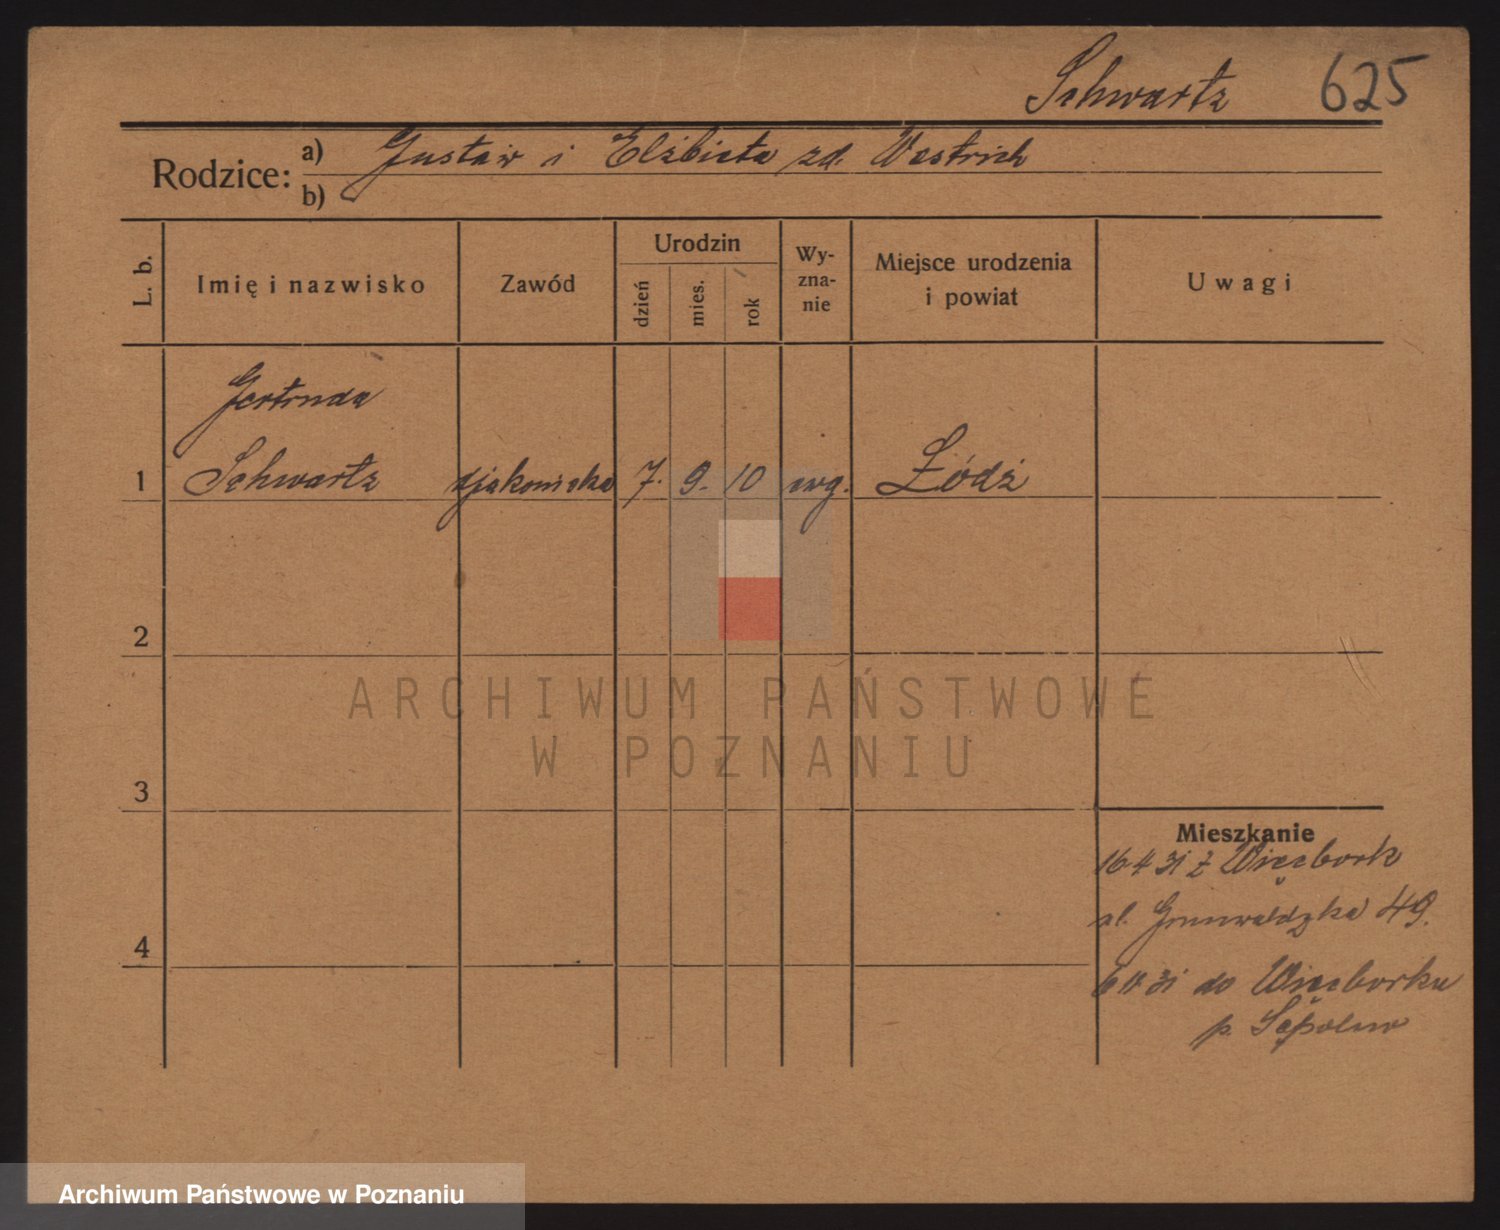 Schwartz 625
Rodzice: a) Gustaw i Elżbieta zd. Westrich
b)
L. b. Imię i nazwisko Zawód Urodzin dzień mies. rok Wy-zna-nie Miejsce urodzenia i powiat Uwagi
Gertruda
1 Schwartz djakoniska 7. 9. 10 ewg. Łódź
2
ARCHIWUM PAŃSTWOWE
W POZNANIU
3
Mieszkanie
16 4 31 z Więcbork
ul. Grunwaldzka 49.
4
6 11 31 do Więcborku
p. Sępolno
Archiwum Państwowe w Poznaniu